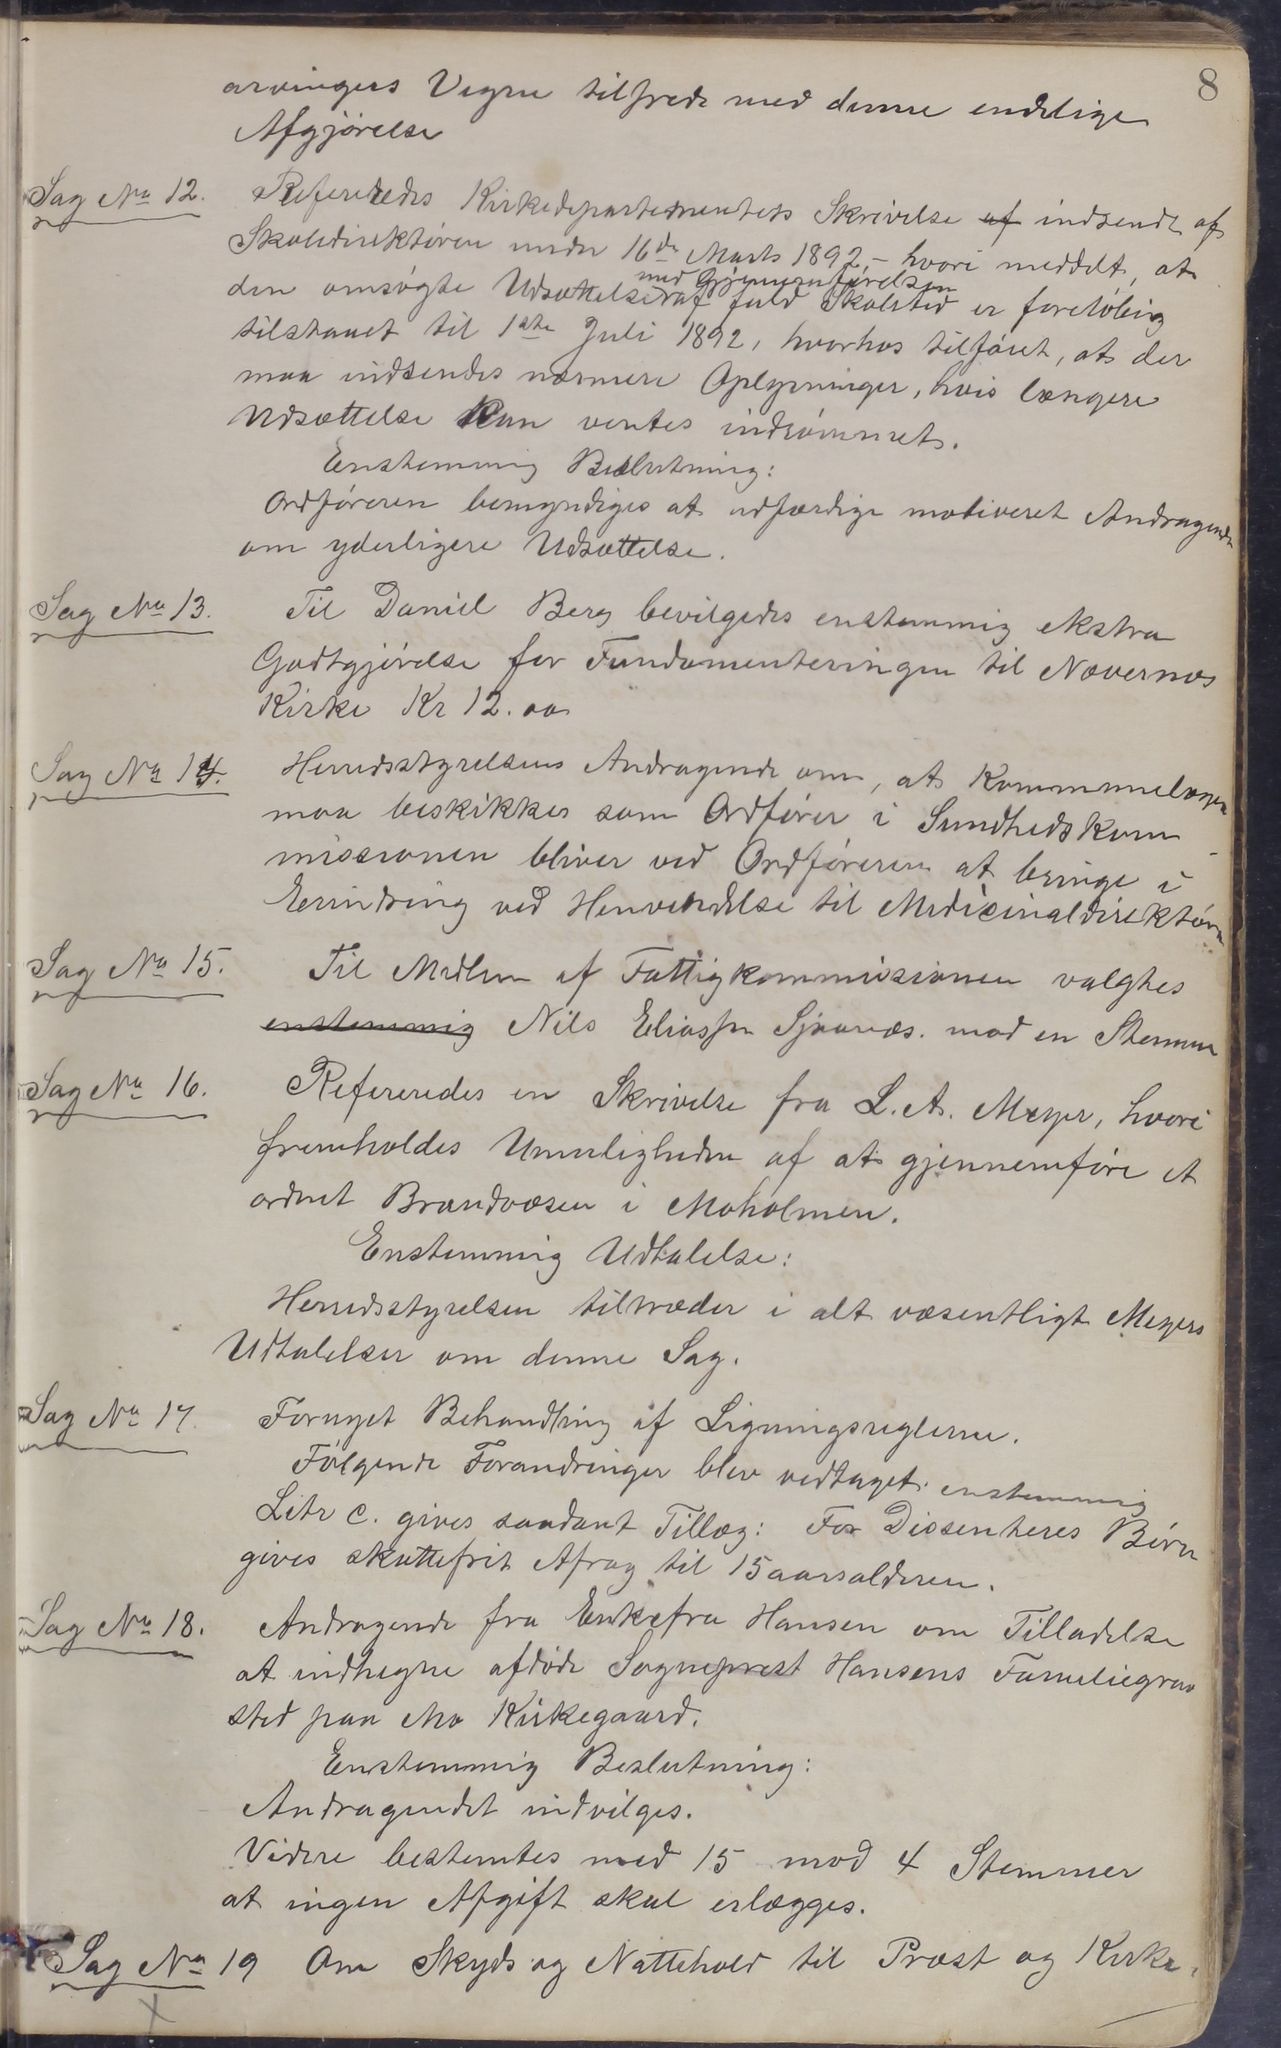 8
arvingers Vegne tilfreds med denne endelige
Afgjørelse
Sag No 12. Refereredes Kirkedepartementets Skrivelse af indsendt af
Skoledirektøren under 16de Marts 1892, – hvori meddelt, at
med Gjennemførelsen
den omsøgte Udsættelse af fuld Skoletid er foreløbig
tilstaaet til 1ste Juli 1892, hvorhos tilføiet, at der
maa indsendes nærmere Oplysninger, hvis længere
Udsættelse kan ventes indrømmet.
Enstemmig Beslutning:
Ordføreren bemyndiges at udfærdige motiveret Andragende
om yderligere Udsættelse.
Sag No 13. Til Daniel Berg bevilgedes enstemmig ekstra
Godtgjørelse for Fundamenteringen til Nævernæs
Kirke Kr 12.00
Sag No 14. Herredsstyrelsens Andragende om, at Kommunelægen
maa beskikkes som Ordfører i Sundhedskom-
missionen bliver ved Ordføreren at bringe i
Erindring ved Henvendelse til Medicinaldirektøren
Sag No 15. Til Medlem af Fattigkommissionen valgtes
enstemmig Nils Eliassen Sjaanæs. mod en Stemme
Sag No 16. Refereredes en Skrivelse fra L. A. Meyer, hvori
fremholdes Umuligheden af at gjennemføre et
ordnet Brandvæsen i Moholmen.
Enstemmig Udtalelse:
Herredsstyrelsen tiltræder i alt væsentligt Meyers
Udtalelser om denne Sag.
Sag No 17. Fornyet Behandling af Ligningsreglerne.
Følgende Forandringer blev vedtaget enstemmig
Litr c. gives saadant Tillæg: For Dissenteres Børn
gives skattefrit Afrag til 15 aarsalderen.
Sag No 18. Andragende fra Enkefru Hansen om Tilladelse
at indhegne afdøde Sogneprest Hansens Familiegrav
sted paa Mo Kirkegaard.
Enstemmig Beslutning:
Andragendet indvilges.
Videre bestemtes med 15 mod 4 Stemmer
at ingen Afgift skal erlægges.
Sag No 19 Om Skyds og Nattehold til Præst og Kirke-